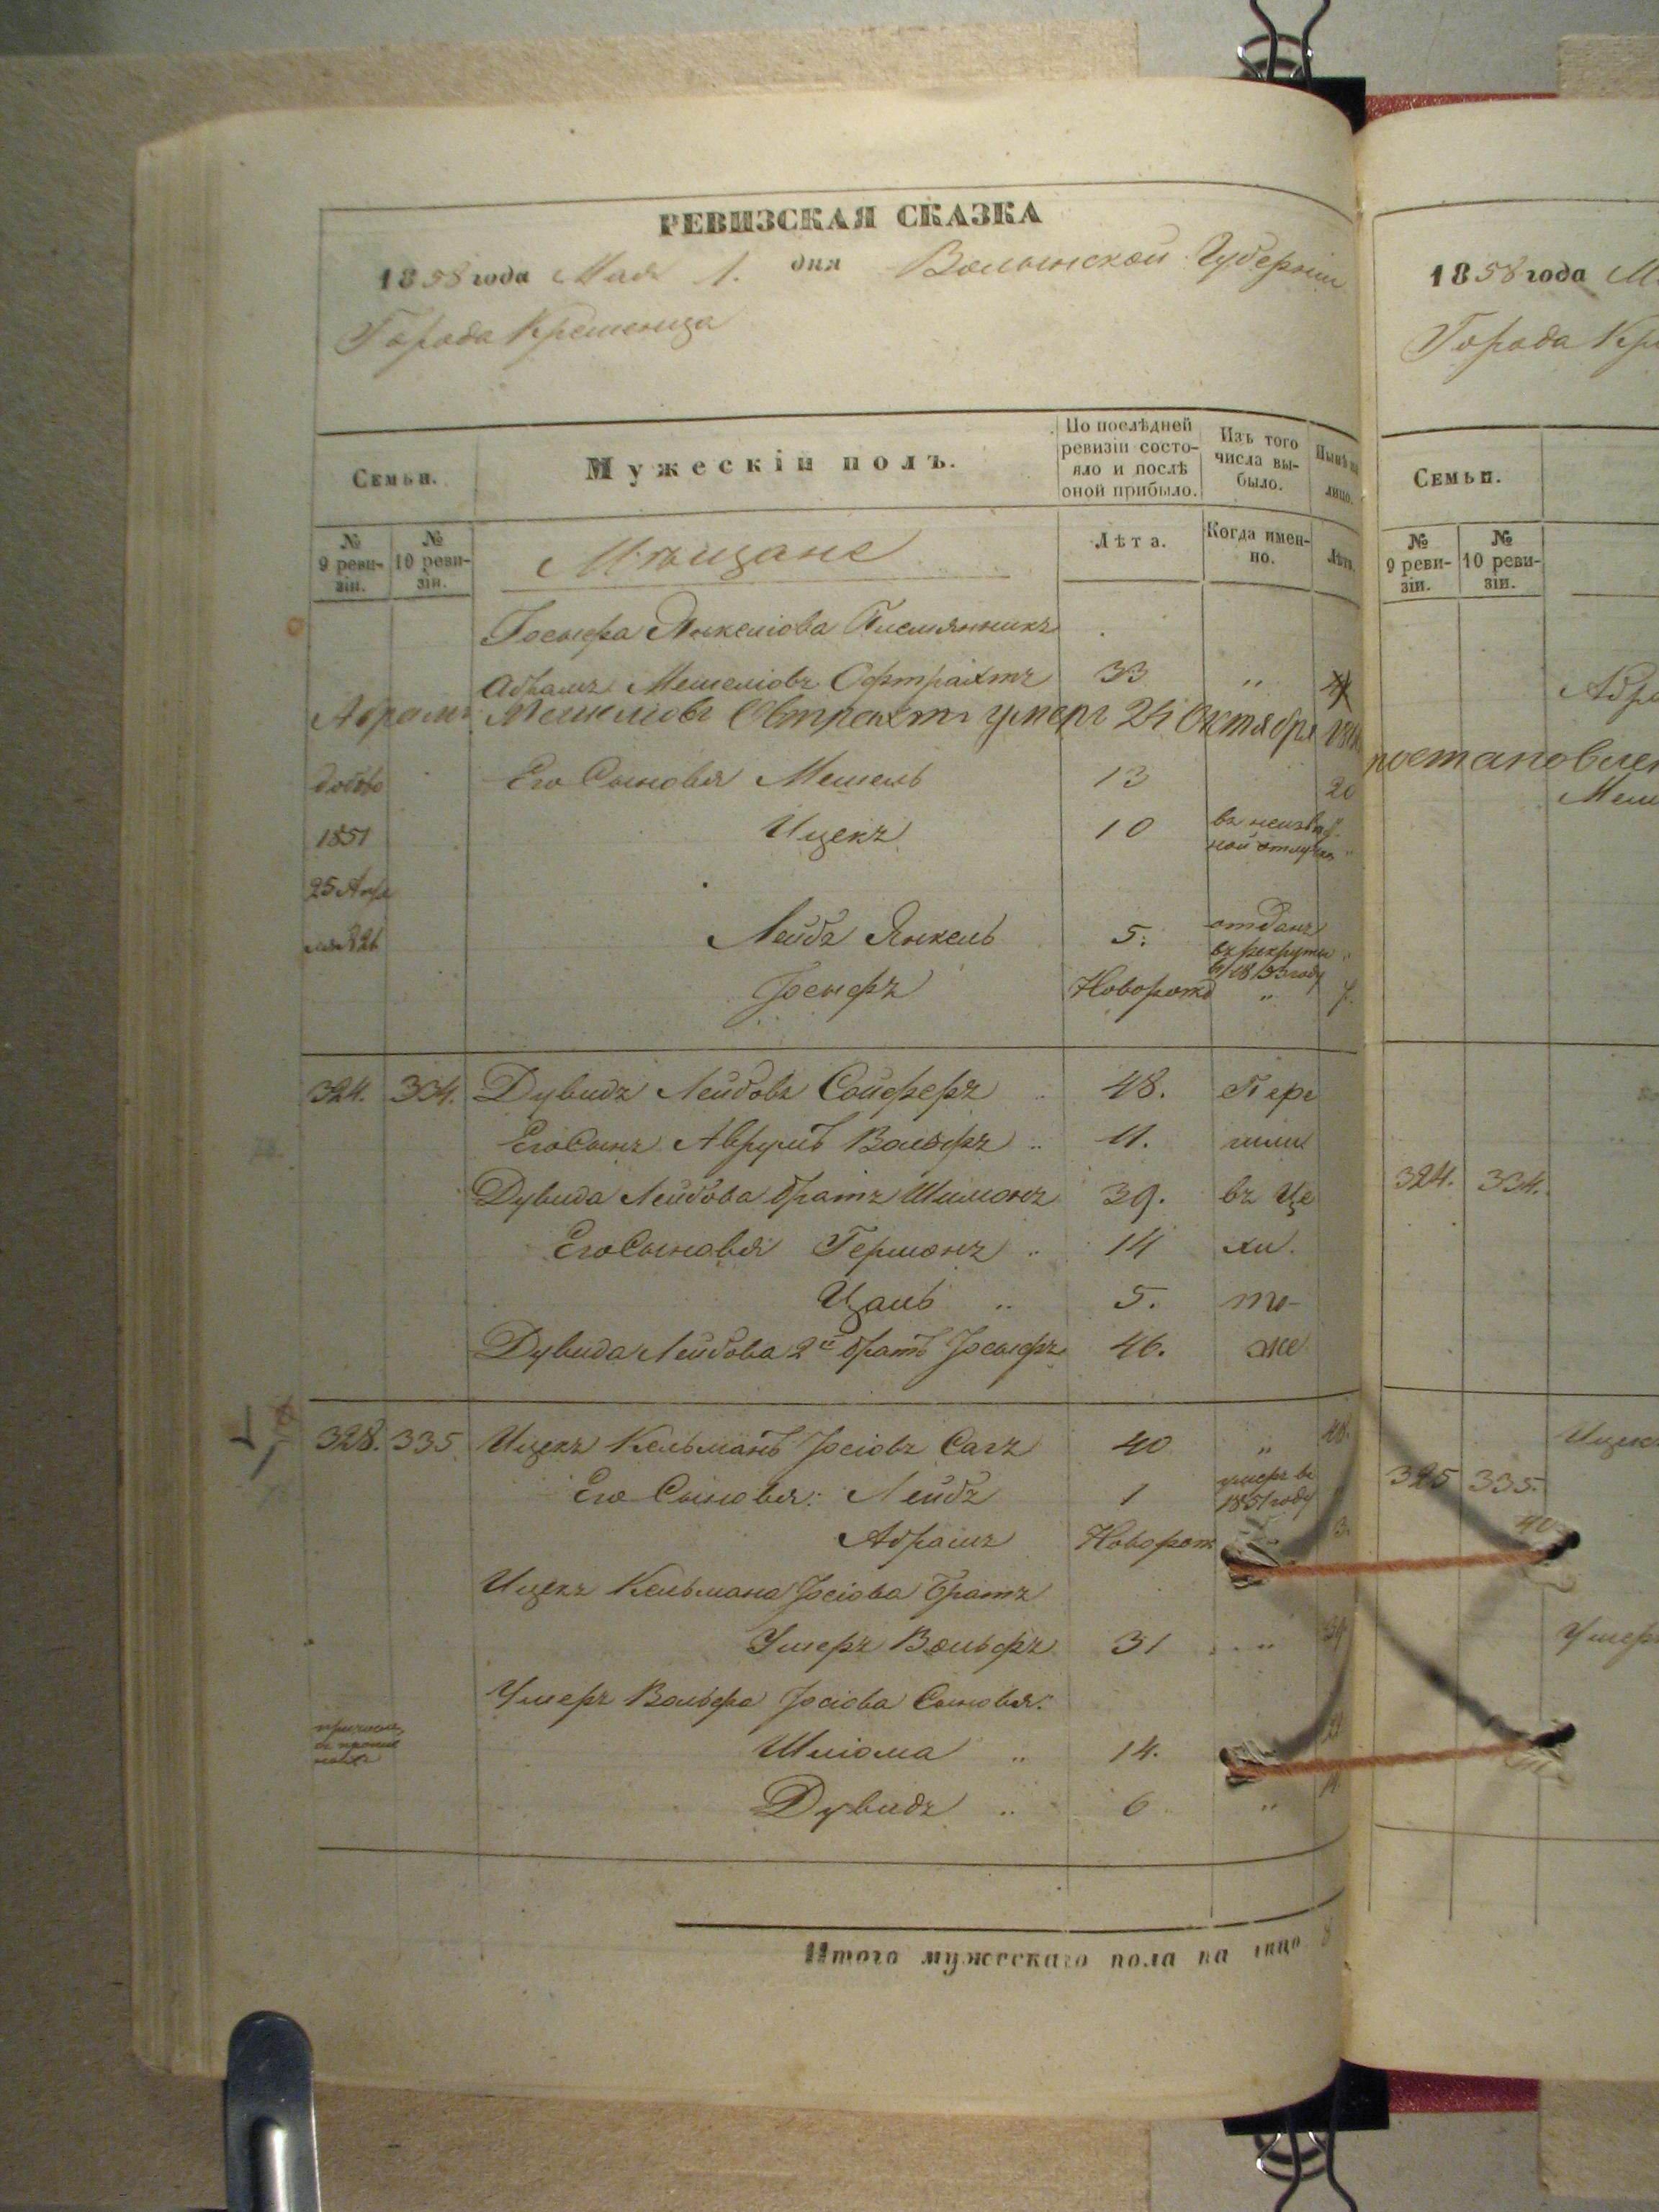 РЕВИЗСКАЯ СКАЗКА
1858 года Мая 1. дня Волынской Губерніи
Города Кременца
Семьи.
Мужескій полъ.
По послѣдней ревизіи состо-
яло и послѣ
оной прибыло.
Изъ того
числа вы-
было.
Нынѣ на
лицо.
№
9 реви-
зіи.
№
10 реви-
зіи.
Мѣщане
Лѣта.
Когда имен-
но.
Лѣта.
Іосыфа Янкеліова Племянникъ
Абрамъ Мешеліовъ Офтрахтъ 33 „
Абрамъ Мешеліовъ Овтрахтъ умеръ 24 Октября
Его Сыновья Мешель 13 20
Ицекъ 10 въ неизвѣст-
ной отлучкѣ „
1851
25 Апр
Лейбъ Янкель 5. отданъ
въ рекруты „
в/1853 году
Іосыфъ Новорожд „ 7.
324. 334. Дувидъ Лейбовъ Сойферъ 48. Пере
Его Сынъ Аврумъ Вольфъ „ 11. шли
Дувида Лейбова братъ Шимонъ 39. въ Це
Его Сыновья Гермонъ „ 14 хи.
Цаль „ 5. то-
Дувида Лейбова 2й братъ Іосыфъ 46. же
328. 335 Ицекъ Кельманъ Іосіовъ Сагъ 40 „ 48.
Его Сыновья: Лейбъ 1 умеръ въ
1851 году „
Абрамъ Новорож „ 3.
Ицекъ Кельмана Іосіова Братъ
Умеръ Вольфъ 31 „ 39
Умеръ Вольфа Іосіова Сыновья:
Шліома „ 14. 22
Дувидъ „ 6 „ 14
Итого мужескаго пола на лицо 8
1858 года М
Города Кре
Семьи.
№
9 реви-
зіи.
№
10 реви-
зіи.
Абра
постановлен
Меш
324. 334.
Ицек
325 335.
40
Умеръ